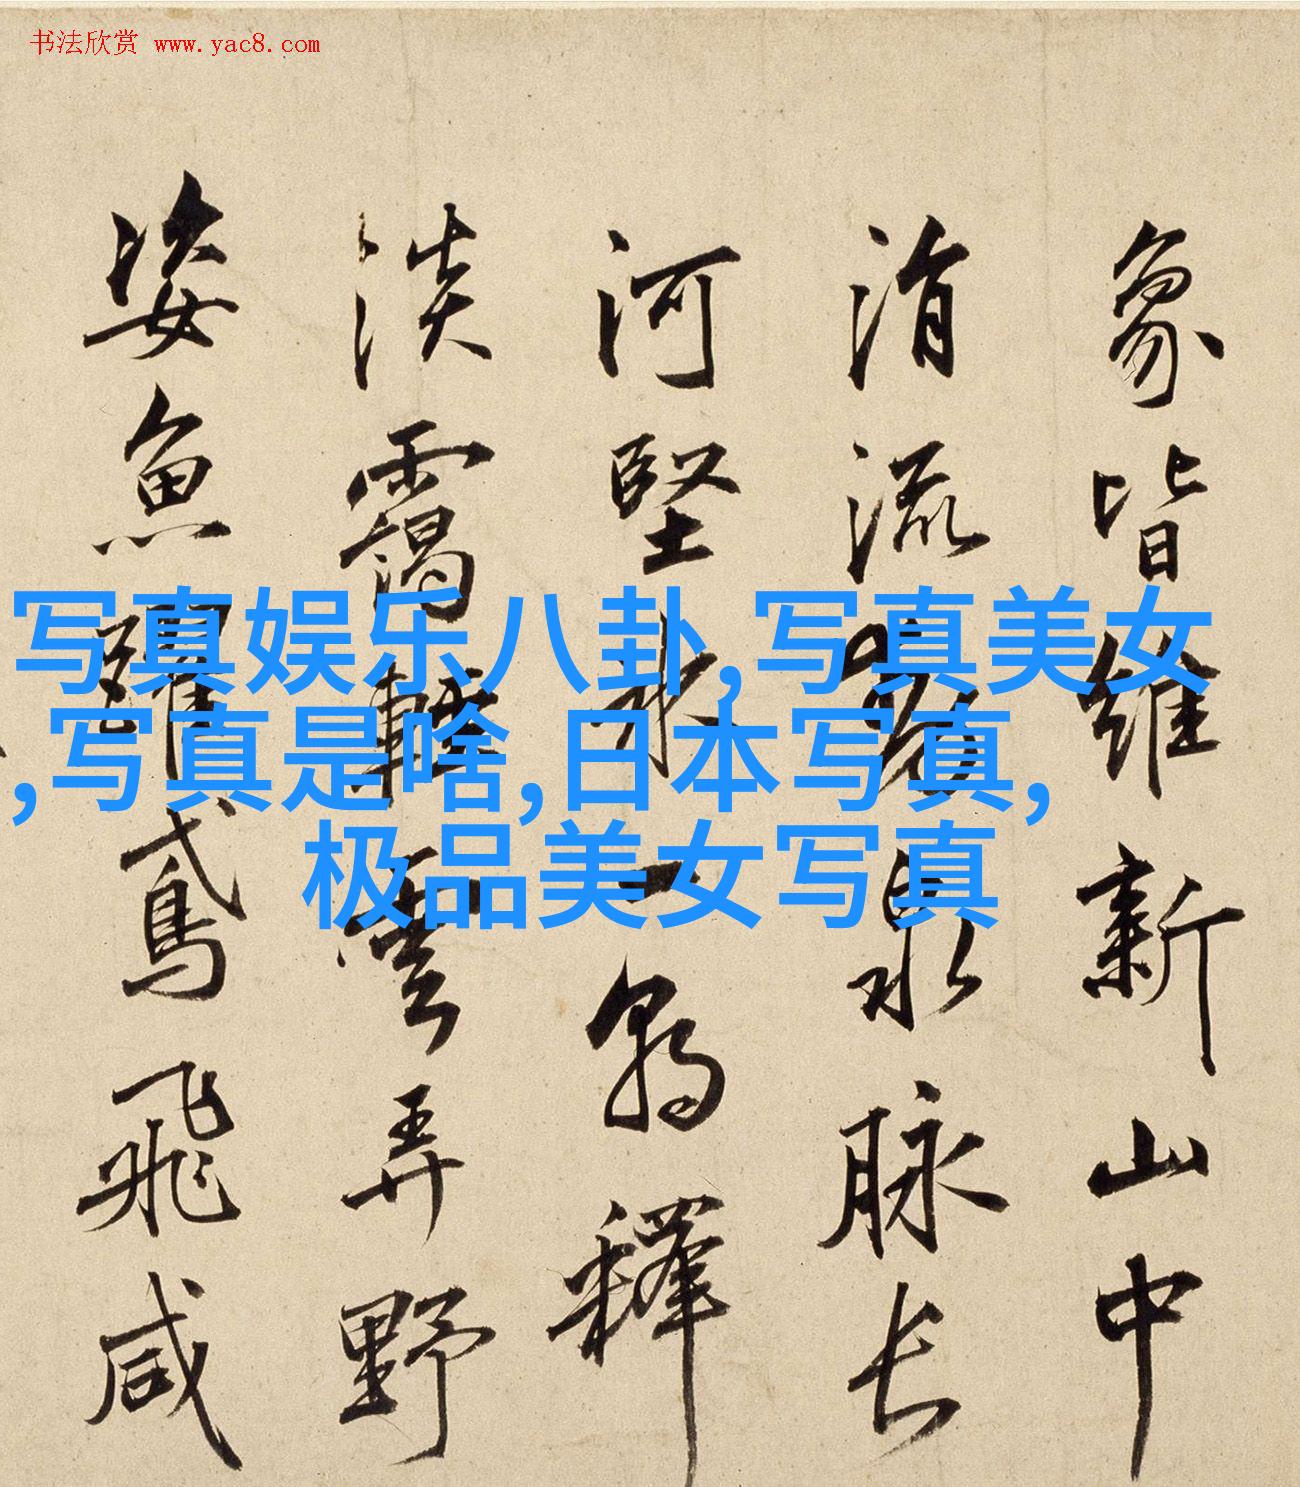 书法欣赏 www.yac8.com
象皆維新山中
涓流泉脉长
河堅冰一釋
淡靄輕雲弄野
姿魚躍鳶飛咸
写真娱乐八卦,写真美女
,写真是啥,日本写真,
极品美女写真